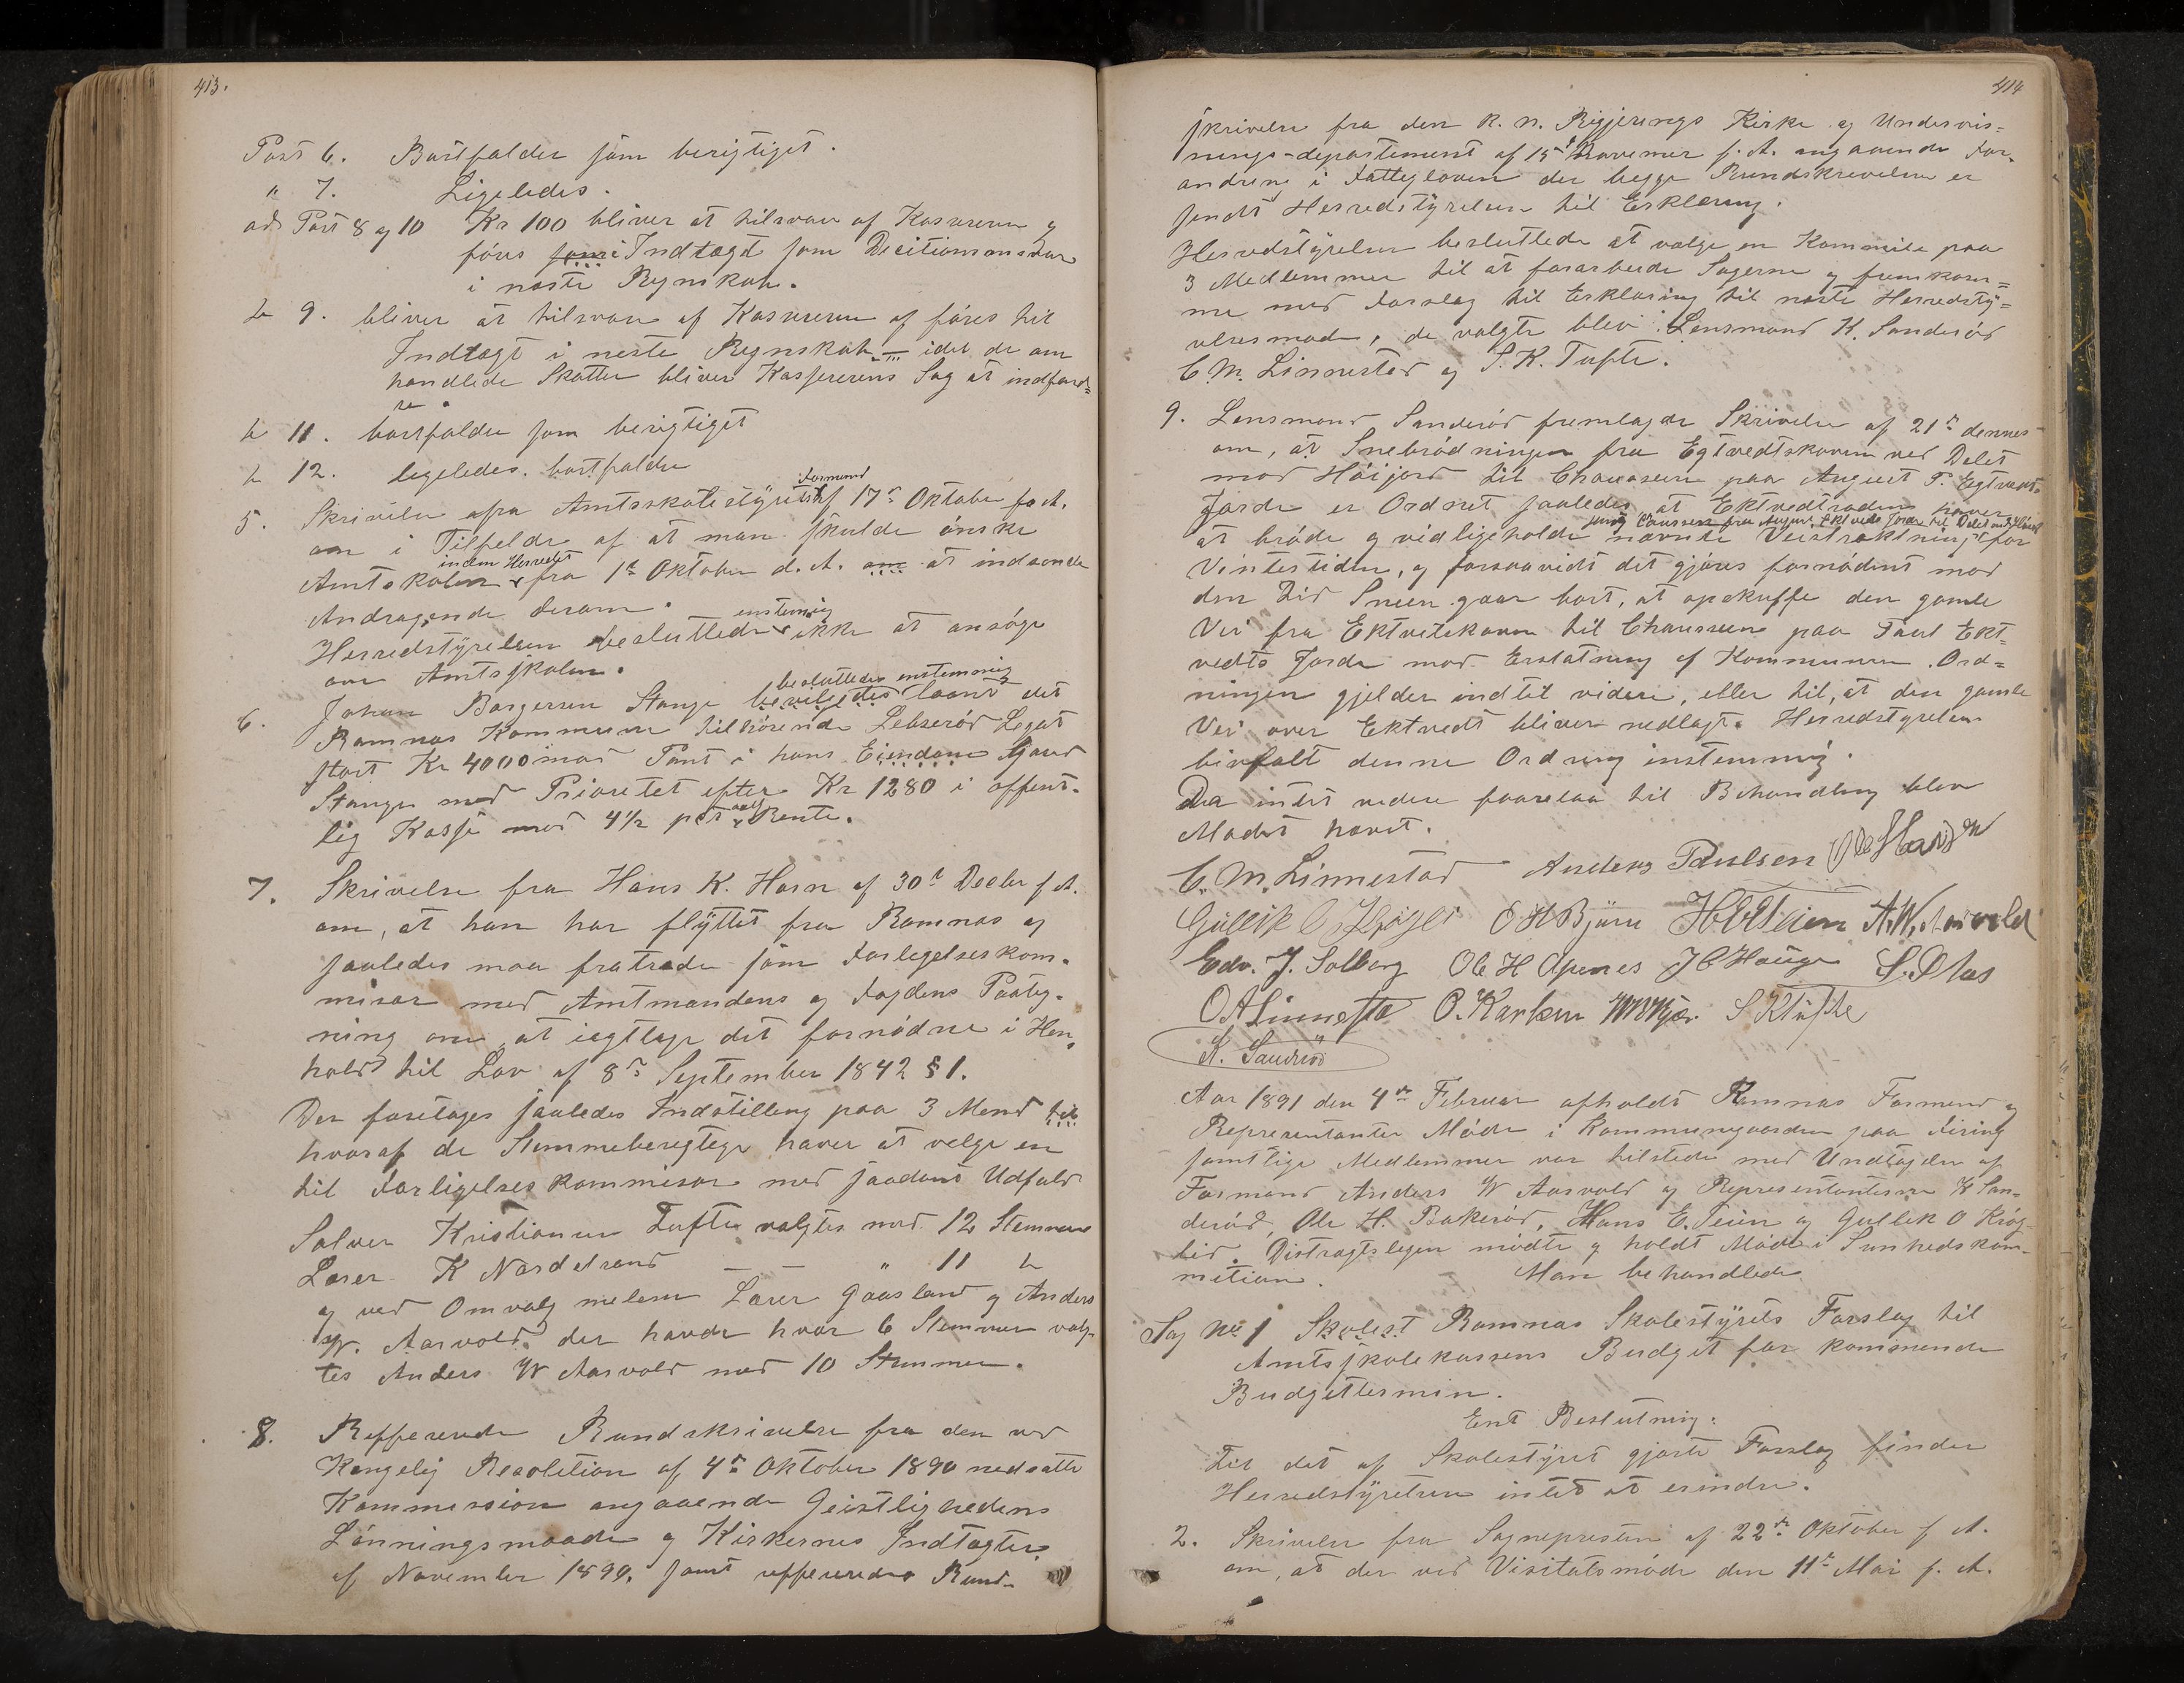 413.
Post 6. Bortfalder som berigtiget.
" 7. Ligeledes.
ad Post 8 og 10 Kr 100 bliver at tilsvare af Kassereren og
föres som i Indtægt som Decitionsansvar
i næste Regnskab.
" 9. bliver at tilsvare af Kassereren og föres til
Indtægt i neste Regnskab. — idet de om
handlede Skatter bliver Kassererens Sag at indford=
re.
" 11. bortfalder som berigtiget
" 12. ligeledes. bortfalder
Formand
5. Skrivelse fra Amtsskolestyrets af 17de Oktober f. A.
om i Tilfelde af at man skulde önske
inden Herredet
Amtskolen fra 1ste Oktober d. A. om at indsende
Andragende derom.
enstemig
Herredstyrelsen besluttede ikke at ansöge
om Amtsskolen.
besluttedes enstemmig
6. Johan Borgersen Stange bevilgedes laant det
Ramnæs Kommune tilhörende Lebseröd Legat
stort Kr 4000 mod Pant i hans Eiendom Gaard
Stange med Prioretet efter Kr 1280 i offent-
aarlig
lig Kasse mod 4½ pct Rente.
7. Skrivelse fra Hans K. Horn af 30te Decbr f. A.
om, at han har flyttet fra Ramnæs og
saaledes maa fratræde som Forlegelseskom-
misær med Amtmandens og Fogdens Paateg-
ning om at iagttage det fornödne i Hen-
hold til Lov af 8de September 1842 § 1.
Der foretages saaledes Indstilling paa 3 Mend til
hvoraf de Stemmeberegtige haver at velge en
til Forligelseskommisær med saadant Udfald
Sølver Kristiansen Tufte valgtes med 12 Stemmer
Lærer K Nordstrand — — " 11 "
og ved Omvalg mellem Lærer Gaasland og Anders
W. Aasvold der havde hver 6 Stemmer valg-
tes Anders W Aasvold med 10 Stemmer.
8. Refferende Rundskrivelse fra den ved
Kongelig Resolution af 4de Oktober 1890 nedsatte
Kommission angaaende Geistlighedens
Lönningsmaade og Kirkernes Indtægter
af November 1890. samt refferedes Rund-
414
skrivelse fra den K. n. Regjerings Kirke og Undervis=
nings-departement af 15de November f. A. angaaende For-
andring i Fattegloven der begge Rundskrivelser er
sendt Herredstyrelsen til Erklering.
Herredstyrelsen besluttede at velge en Kommite paa
3 Medlemmer til at forarbeide Sagerne og fremkom=
me med Forslag til Erklæring til næste Herredsty=
relsesmøde, de valgte blev: Lensmand K. Sanderöd
C. M. Linnestad og S. K. Tufte.
9. Lensmand Sanderöd fremlagde Skrivelse af 21de dennes
om, at Snebrödningen fra Egtvedtskoven ved Delet
mod Höijord til Chauseen paa August P. Egtvedts
Jorde er Ordnet saaledes at Ektvedtroden haver
at bröde og vidligeholde nævnte Veistrækning for
Vinterstiden, og forsaavidt det gjöres fornödent mod
den Tid Sneen gaar bort, at opskuffe den gamle
Vei fra Ektvetskoven til Chausseen paa Paul Ekt=
vedts Jorde mod Erstatning af Kommunen. Ord=
ningen gjelder indtil videre, eller til, at den gamle
Vei over Ektvedt bliver nedlagt. Herredstyrelsen
bifalt denne Ordning instemmig.
Da intet vedere forelaa til Behandling blev
Mødet hævet.
C. M. Linnestad Anders Paulsen
Gullik O O H Björn H E Teien A. W. Aasvold
Edv. J. Solberg Ole H Apenes J C Hauge S. Aas
O A Linnestad O. Karlsen S K Tufte
K. Sanderöd
Aar 1891 den 4de Februar afholdt Ramnæs Formend og
Representanter Møde i Kommunegaarden paa Firing
samtlige Medlemmer var tilstede med Undtagelse af
Formand Anders W Aasvold og Representanterne K San-
deröd, Ole H. Bakeröd, Hans E. Teien og Gullik O Krög
lid. Distragtslægen mödte og holdt Möde i Sunhedskom-
mitionen. Man behandlede
Sag No 1 Skolest Ramnæs Skolestyrets Forslag til
Amtsskolekassens Budget for kommende
Budgettermin.
Ent Beslutning:
Til det af Skolestyret gjorte Forslag finder
Herredstyrelsen intet at erindre.
2. Skrivelse fra Sognepresten af 22de Oktober f A.
om, at der ved Visitatsmöde den 11te Mai f. A.